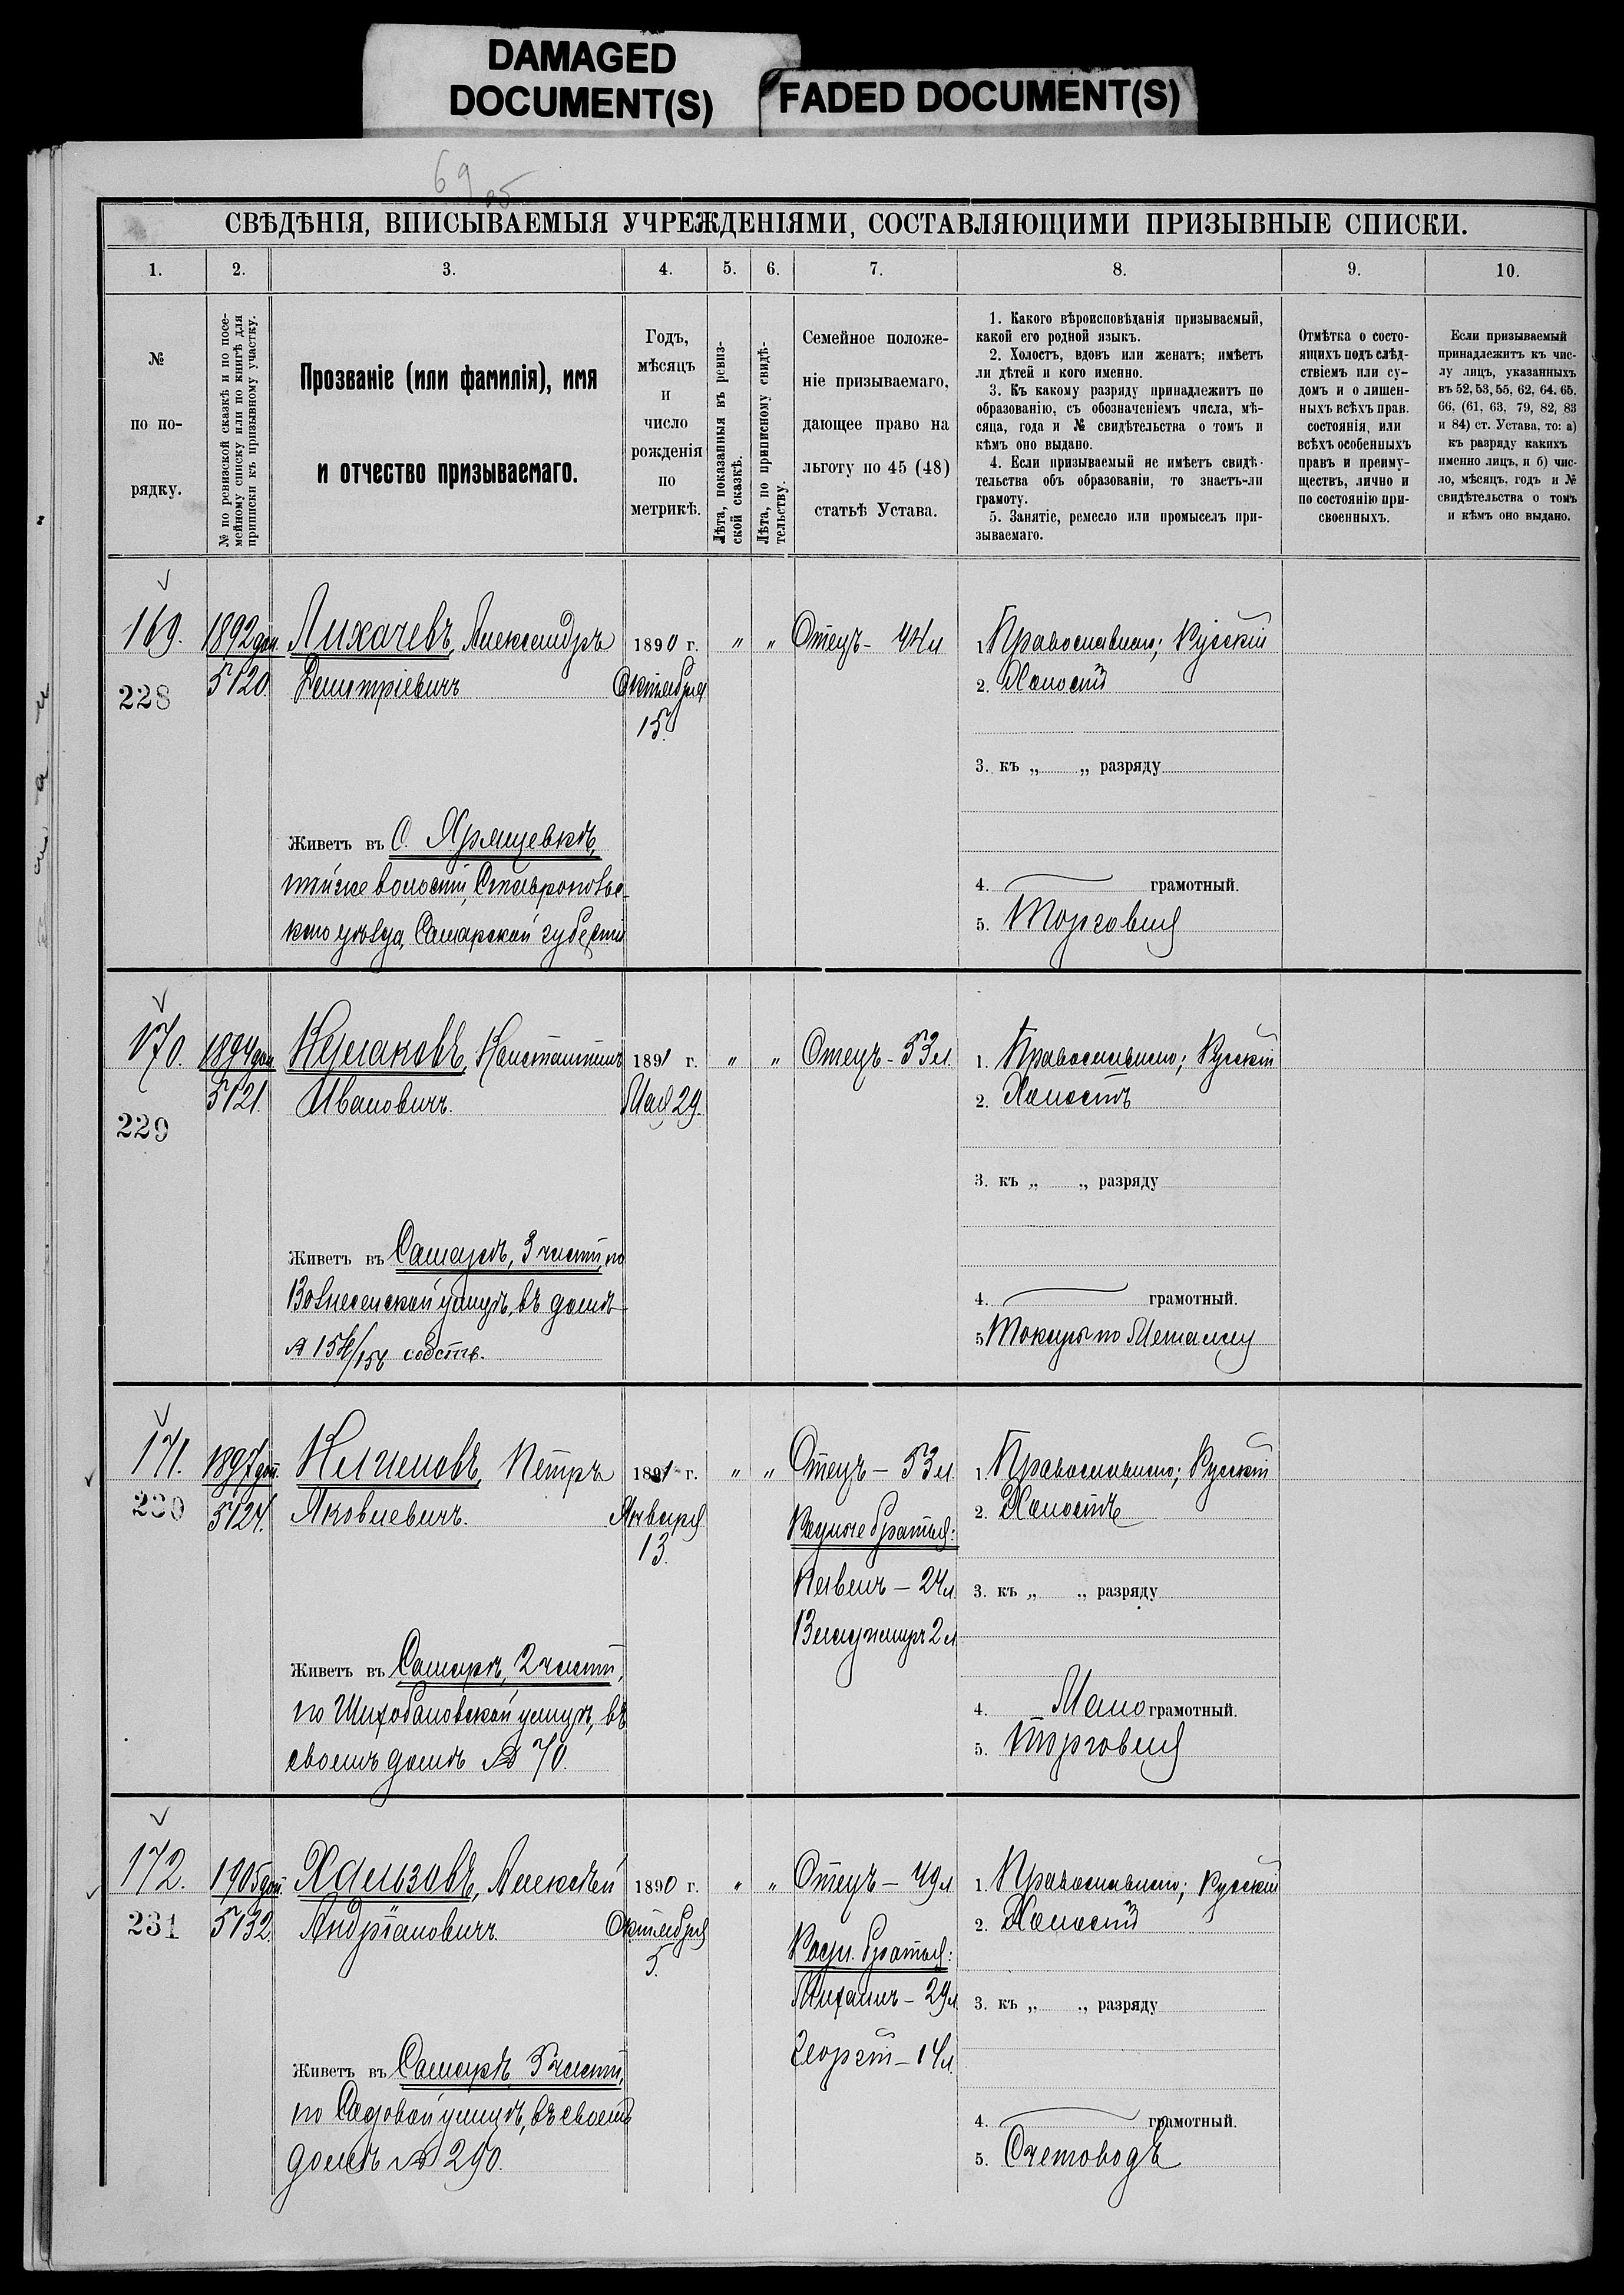 DAMAGED
DOCUMENT(S)
FADED DOCUMENT(S)
69 об
СВѢДѢНІЯ, ВПИСЫВАЕМЫЯ УЧРЕЖДЕНІЯМИ, СОСТАВЛЯЮЩИМИ ПРИЗЫВНЫЕ СПИСКИ.
1. 2. 3. 4. 5. 6. 7. 8. 9. 10.
№
по по-
рядку.
№ по ревизской сказкѣ и по посе-
мейному списку или по книгѣ для
приписки къ призывному участку.
Прозваніе (или фамилія), имя
и отчество призываемаго.
Годъ,
мѣсяцъ
и
число
рожденія
по
метрикѣ.
Лѣта, показанныя въ ревиз-
ской сказкѣ.
Лѣта, по приписному свидѣ-
тельству.
Семейное положе-
ніе призываемаго,
дающее право на
льготу по 45 (48)
статьѣ Устава.
1. Какого вѣроисповѣданія призываемый,
какой его родной языкъ.
2. Холостъ, вдовъ или женатъ; имѣетъ
ли дѣтей и кого именно.
3. Къ какому разряду принадлежитъ по
образованію, съ обозначеніемъ числа, мѣ-
сяца, года и № свидѣтельства о томъ и
кѣмъ оно выдано.
4. Если призываемый не имѣетъ свидѣ-
тельства объ образованіи, то знаетъ-ли
грамоту.
5. Занятіе, ремесло или промыселъ при-
зываемаго.
Отмѣтка о состо-
ящихъ подъ слѣд-
ствіемъ или су-
домъ и о лишен-
ныхъ всѣхъ прав.
состоянія, или
всѣхъ особенныхъ
правъ и преиму-
ществъ, лично и
по состоянію при-
своенныхъ.
Если призываемый
принадлежитъ къ чис-
лу лицъ, указанныхъ
въ 52, 53, 55, 62, 64, 65,
66, (61, 63, 79, 82, 83
и 84) ст. Устава, то: а)
къ разряду какихъ
именно лицъ, и б) чис-
ло, мѣсяцъ, годъ и №
свидѣтельства о томъ
и кѣмъ оно выдано.
169. 1892 доп. Лихачевъ, Александръ 1890 г. „ „ Отецъ - 44 л. 1. Православнаго; Русскій
228 5120. Дмитріевичъ Октября 2. Холостъ
15.
3. къ „ „ разряду
Живетъ въ С. Хрящевкѣ,
той же волости, Ставрополь-
скаго уѣзда, Самарской губерніи
4. грамотный.
5. Торговля
170. 1894 доп. Кулаковъ, Константинъ 1891 г. „ „ Отецъ - 53 л. 1. Православнаго; Русскій
229 5121. Ивановичъ. Мая 29. 2. Холостъ
3. къ „ „ разряду
Живетъ въ Самарѣ, 3 части, по
Вознесенской улицѣ, въ домѣ
№ 154/156 собств.
4. грамотный.
5 Токарь по Металлу
171. 1897 доп. Петръ 1891 г. „ „ Отецъ - 53 л. 1. Православнаго; Русскій
230 5124. Яковлевичъ. Января Родные братья: 2. Холостъ
13. Павелъ - 24 л.
3. къ „ „ разряду
Владиміръ 2 л.
Живетъ въ Самарѣ, 2 части,
по Шихобаловской улицѣ, въ
своемъ домѣ № 70.
4. Мало грамотный.
5. Торговля
172. 1905 доп. Хальзовъ, Алексѣй 1890 г. „ „ Отецъ - 49 л. 1. Православнаго; Русскій
231 5132. Андріановичъ Октября 2. Холостъ
5. Родн. братья:
Михаилъ - 29 л.
3. къ „ „ разряду
Георгій - 14 л.
Живетъ въ Самарѣ 5 части,
по Садовой улицѣ, въ своемъ
домѣ № 290.
4. грамотный.
5. Счетоводъ